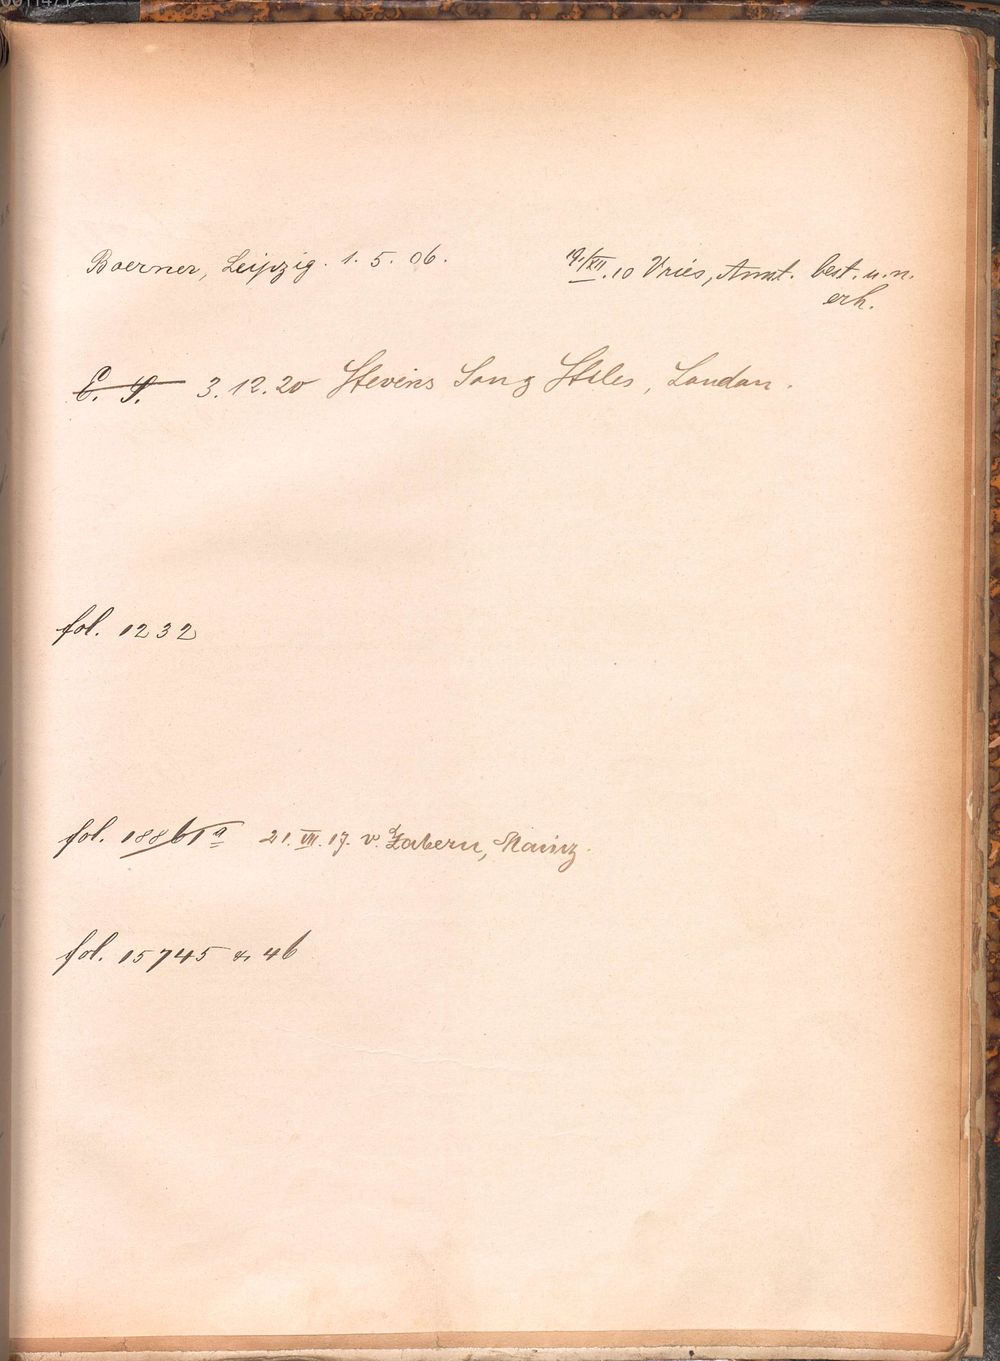 Boerner, Leipzig. 1. 5. 06.
19./XII. 10 Vries, Amst. best. u. n.
erh.
E. S. 3. 12. 20 Stevens Son & Stiles, London.
fol. 1232
fol. 18861 a 21. VII. 17. v. Zabern, Mainz.
fol. 15745 & 46